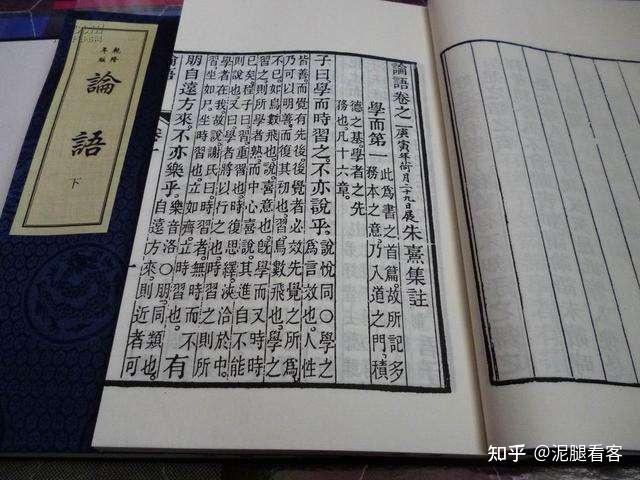 乾隆
年版
論語
下
論語卷之一 庚寅年荷月二十九日展 朱熹集註
學而第一
此爲書之首篇。故所記多
務本之意。乃入道之門。積
德之基。學者之先
務也。凡十六章。
子曰學而時習之。不亦說乎。
說悅同〇學之
爲言效也。人性
皆善。而覺有先後。後覺者必效先覺之所爲。
乃可以明善而復其初也。習。鳥數飛也。學之
不已。如鳥數飛也。說。喜意也。旣學而又時時
習之。則所學者熟。而中心喜說。其進自不能
已矣。程子曰。習。重習也。時復思繹。浹洽於中。
則說也。又曰。學者。將以行之也。時習之。則所
學者在我。故說。謝氏曰。時習者。無時而不
習。坐如尸。坐時習也。立如齊。立時習也。
有
朋自遠方來。不亦樂乎。
樂音洛〇朋。同類也。
自遠方來。則近者可
論語
一
知乎 @泥腿看客